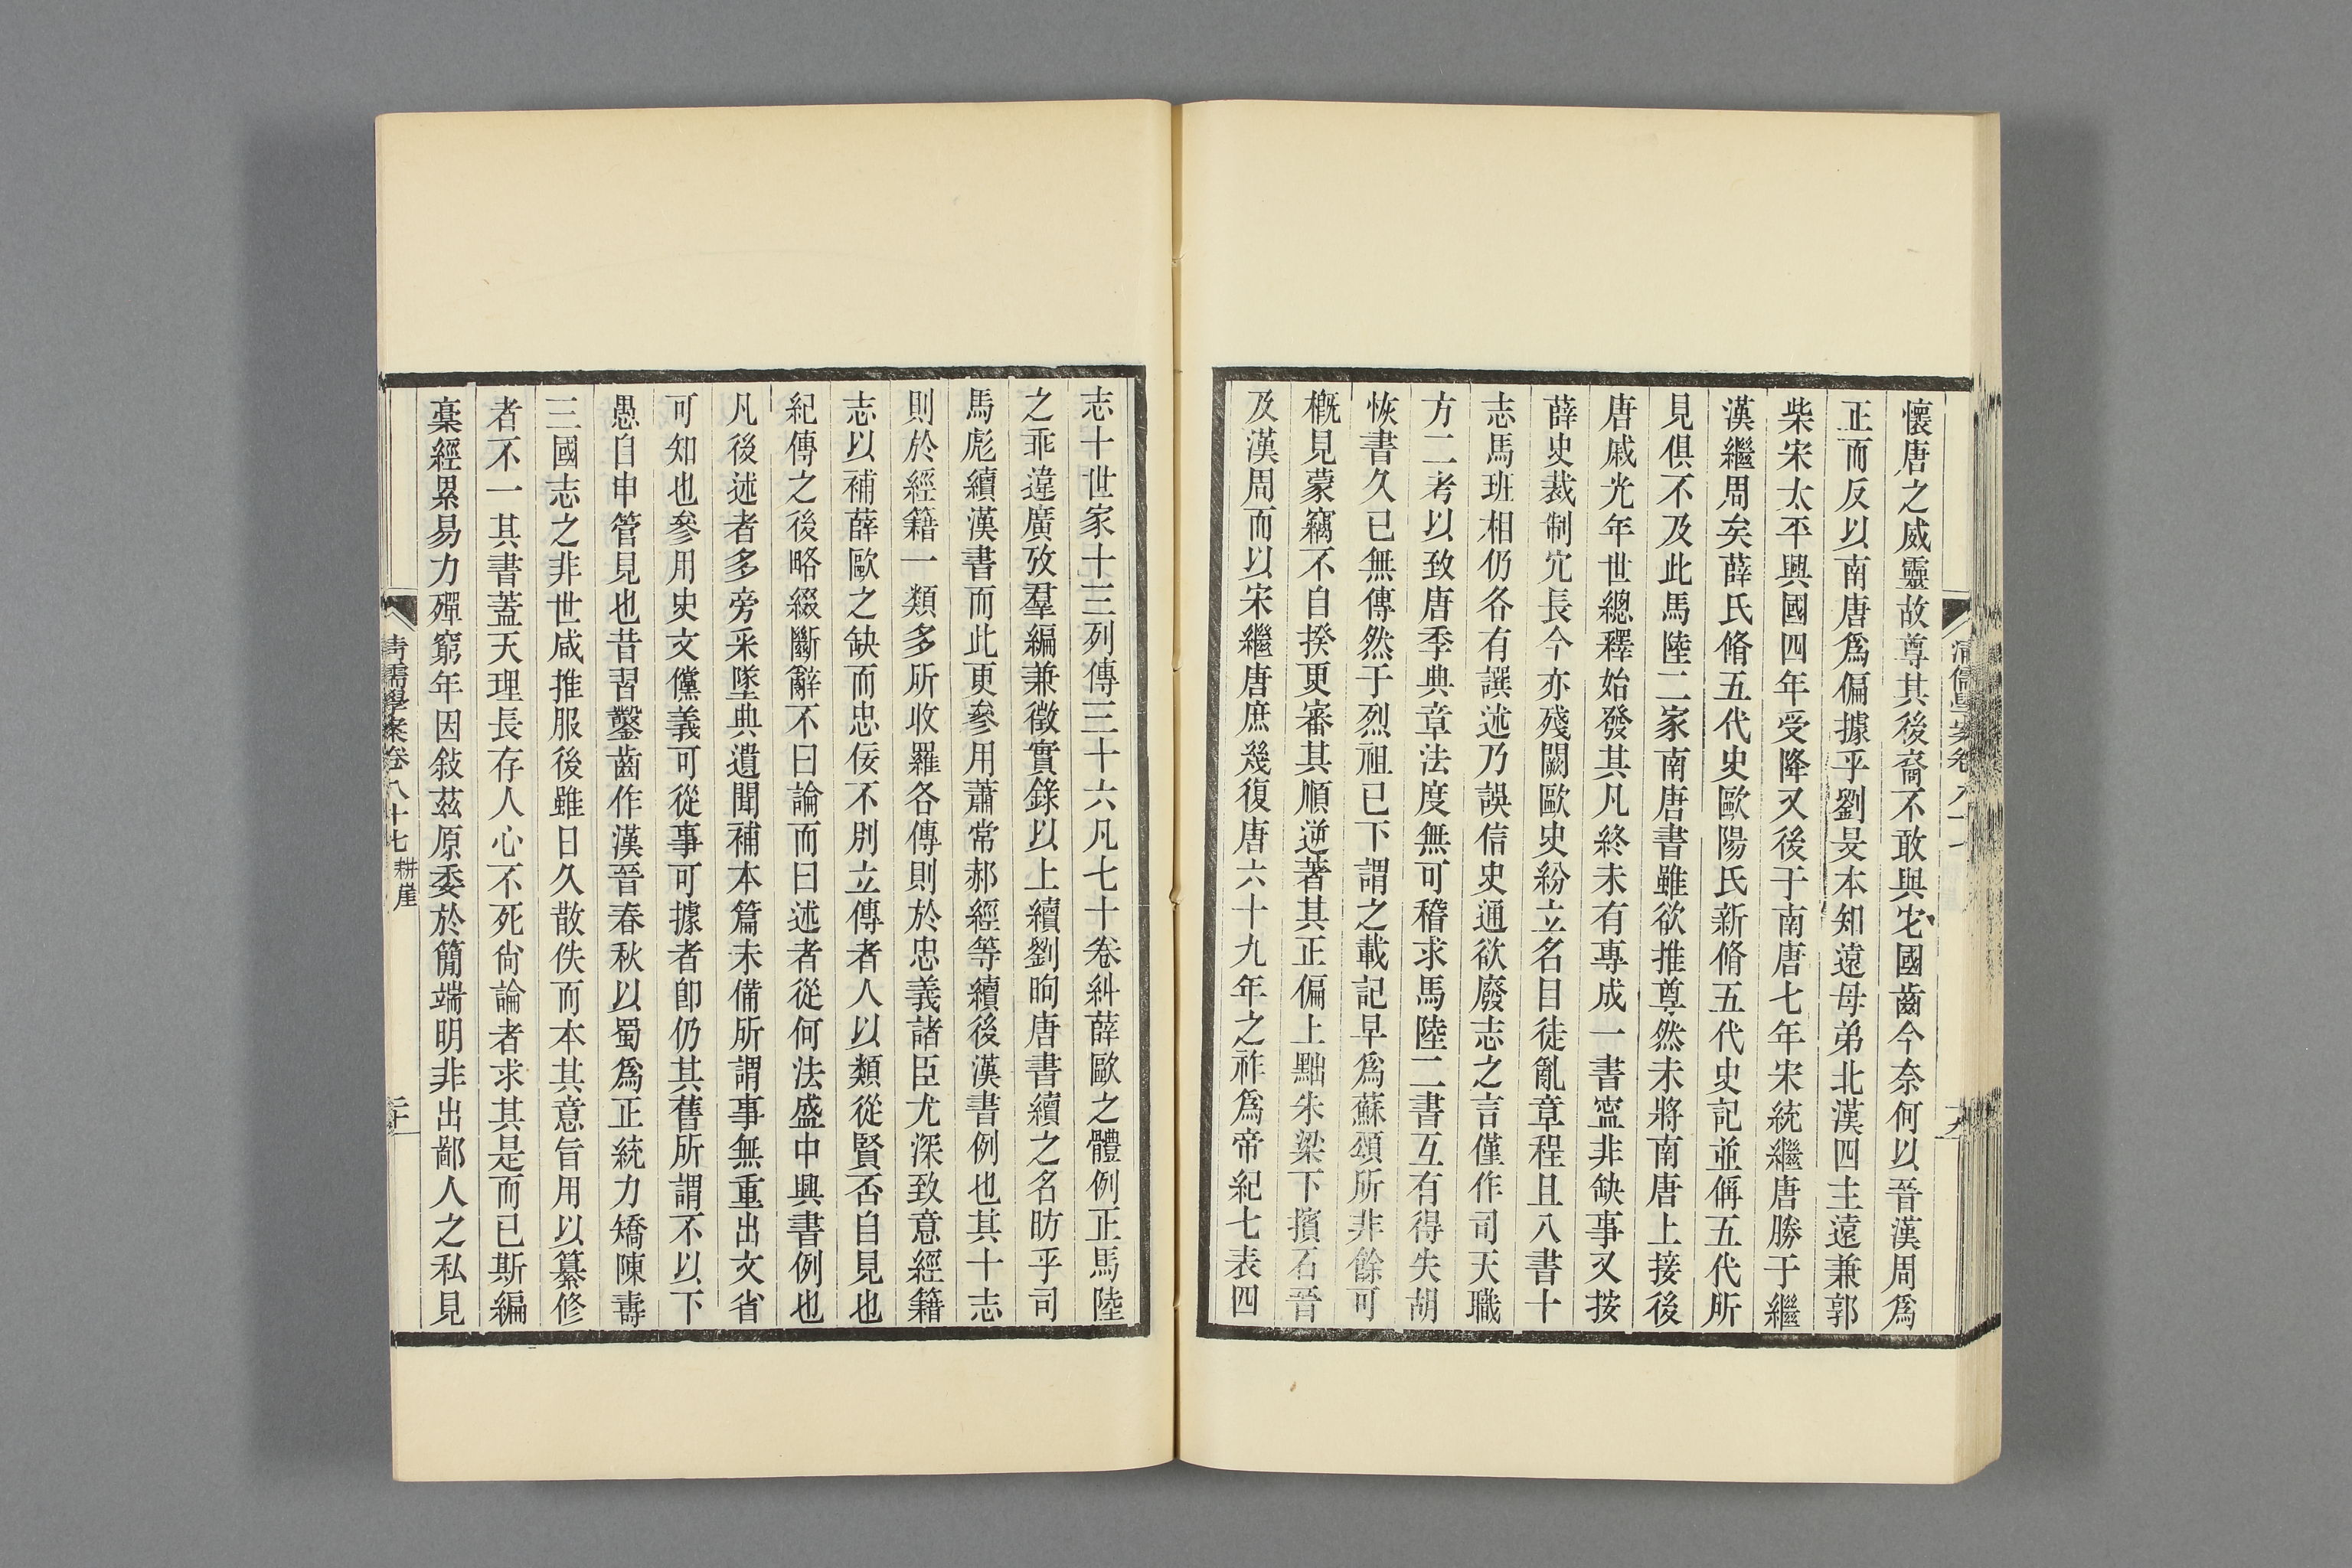 懷唐之威靈故尊其後裔不敢與宅國齒今奈何以晉漢周爲
正而反以南唐爲偏據乎劉旻本知遠母弟北漢四主遠兼郭
柴宋太平興國四年受降又後于南唐七年宋統繼唐勝于繼
漢繼周矣薛氏脩五代史歐陽氏新脩五代史記並偁五代所
見俱不及此馬陸二家南唐書雖欲推尊然未將南唐上接後
唐戚光年世總釋始發其凡終未有專成一書寔非缺事又按
薛史裁制冗長今亦殘闕歐史紛立名目徒亂章程且八書十
志馬班相仍各有譔述乃誤信史通欲廢志之言僅作司天職
方二考以致唐季典章法度無可稽求馬陸二書互有得失胡
恢書久已無傳然于烈祖已下謂之載記早爲蘇頌所非餘可
概見蒙竊不自揆更審其順逆著其正偏上黜朱梁下擯石晉
及漢周而以宋繼唐庶幾復唐六十九年之祚爲帝紀七表四
志十世家十三列傳三十六凡七十卷糾薛歐之體例正馬陸
之乖違廣攷羣編兼徵實錄以上續劉昫唐書續之名昉乎司
馬彪續漢書而此更參用蕭常郝經等續後漢書例也其十志
則於經籍一類多所收羅各傳則於忠義諸臣尤深致意經籍
志以補薛歐之缺而忠佞不別立傳者人以類從賢否自見也
紀傳之後略綴斷辭不曰論而曰述者從何法盛中興書例也
凡後述者多旁采墜典遺聞補本篇未備所謂事無重出文省
可知也參用史文儻義可從事可據者卽仍其舊所謂不以下
愚自申管見也昔習鑿齒作漢晉春秋以蜀爲正統力矯陳壽
三國志之非世咸推服後雖日久散佚而本其意旨用以纂修
者不一其書蓋天理長存人心不死尙論者求其是而已斯編
稾經累易力殫窮年因敍茲原委於簡端明非出鄙人之私見
清儒學案卷八十七 耕崖
二十